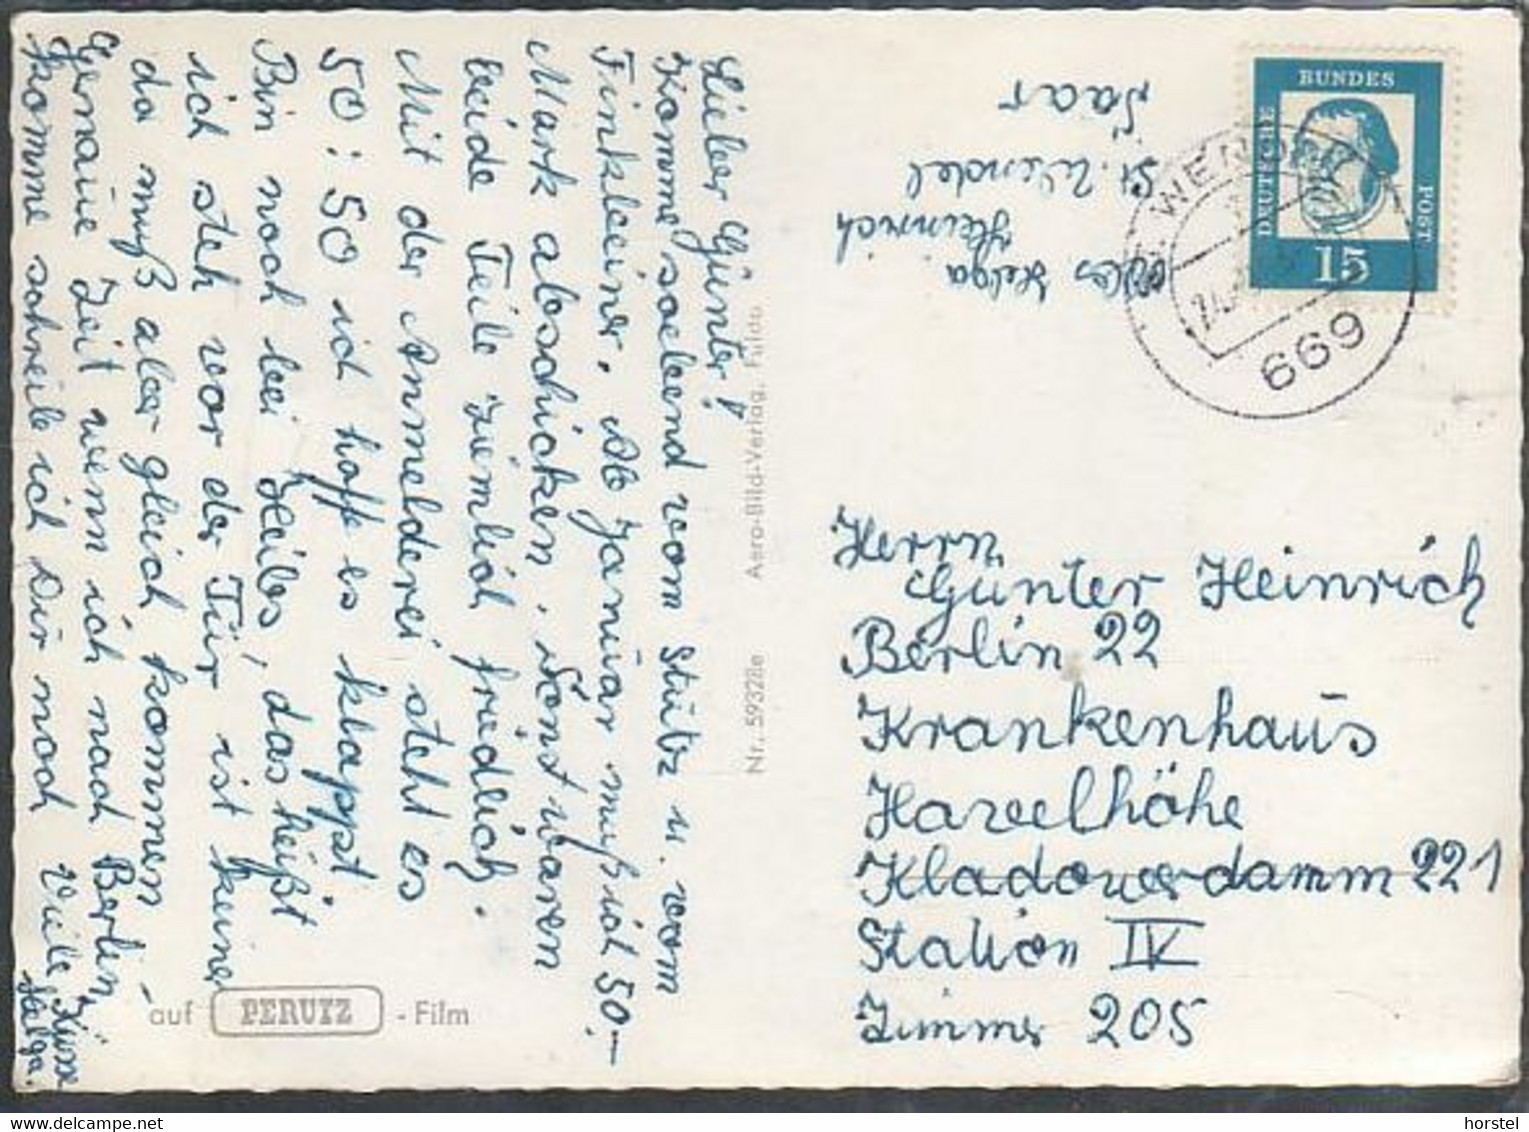 Lieber Günter!
Komme soebend vom Stütz u. vom
Finkleiner. Ab Januar muß ich 50.—
Mark abschicken. Sonst waren
beide Teile zimlich friedlich.
Mit der Anmelderei steht es
50 : 50 ich hoffe es klappt
Bin noch bei Heibes, das heißt
ich steh vor der Tür ist keiner
da muß aber gleich kommen –
Genaue Zeit wenn ich nach Berlin
komme schreibe ich Dir noch Viele Küsse
Helga.
Abs Helga
Heinrich
St. Wendel
Saar
DEUTSCHE
BUNDES
POST
15
ST. WENDEL
669
Herrn
Günter Heinrich
Berlin 22
Krankenhaus
Havelhöhe
Kladowerdamm 221
Station IV
Zimmer 205
Nr. 59328e Aero-Bild-Verlag, Fulda
auf PERUTZ - Film
horstel
www.delcampe.net